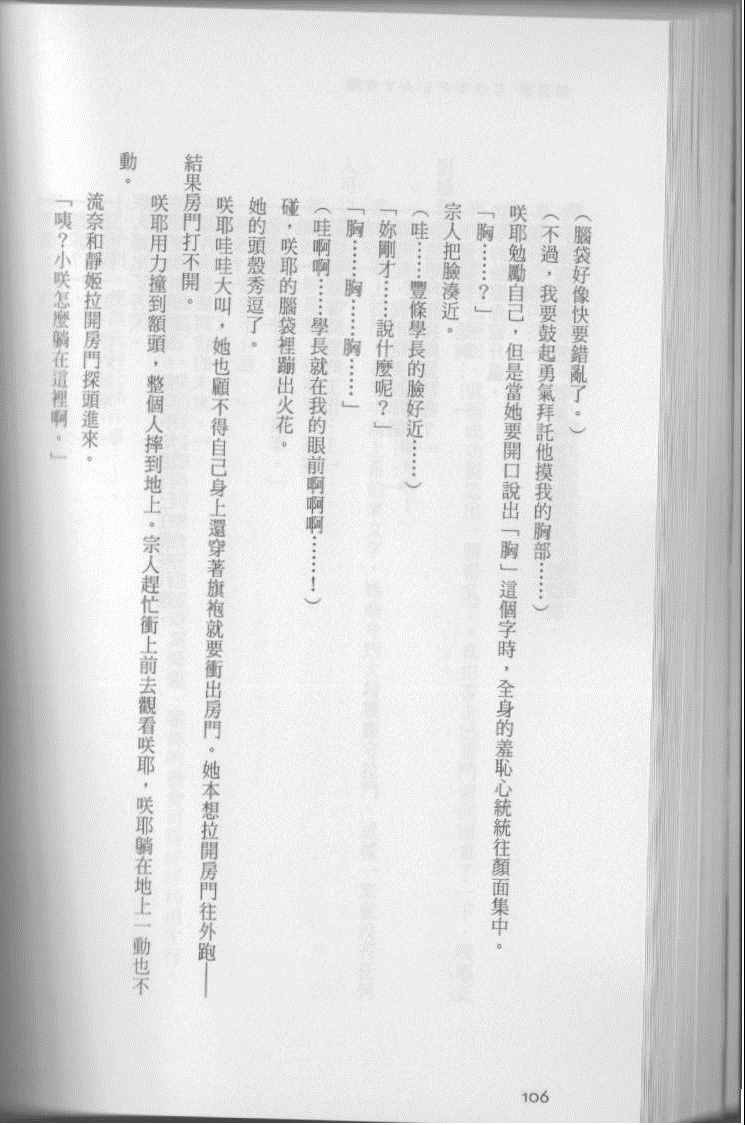 （腦袋好像快要錯亂了。）
（不過，我要鼓起勇氣拜託他摸我的胸部……）
咲耶勉勵自己，但是當她要開口說出「胸」這個字時，全身的羞恥心統統往顏面集中。
「胸……？」
宗人把臉湊近。
（哇……豐條學長的臉好近……）
「妳剛才……說什麼呢？」
「胸……胸……胸……」
（哇啊啊……學長就在我的眼前啊啊啊……！）
碰，咲耶的腦袋裡蹦出火花。
她的頭殼秀逗了。
咲耶哇哇大叫，她也顧不得自己身上還穿著旗袍就要衝出房門。她本想拉開房門往外跑——
結果房門打不開。
咲耶用力撞到額頭，整個人摔到地上。宗人趕忙衝上前去觀看咲耶，咲耶躺在地上一動也不
動。
流奈和靜姬拉開房門探頭進來。
「咦？小咲怎麼躺在這裡啊。」
106